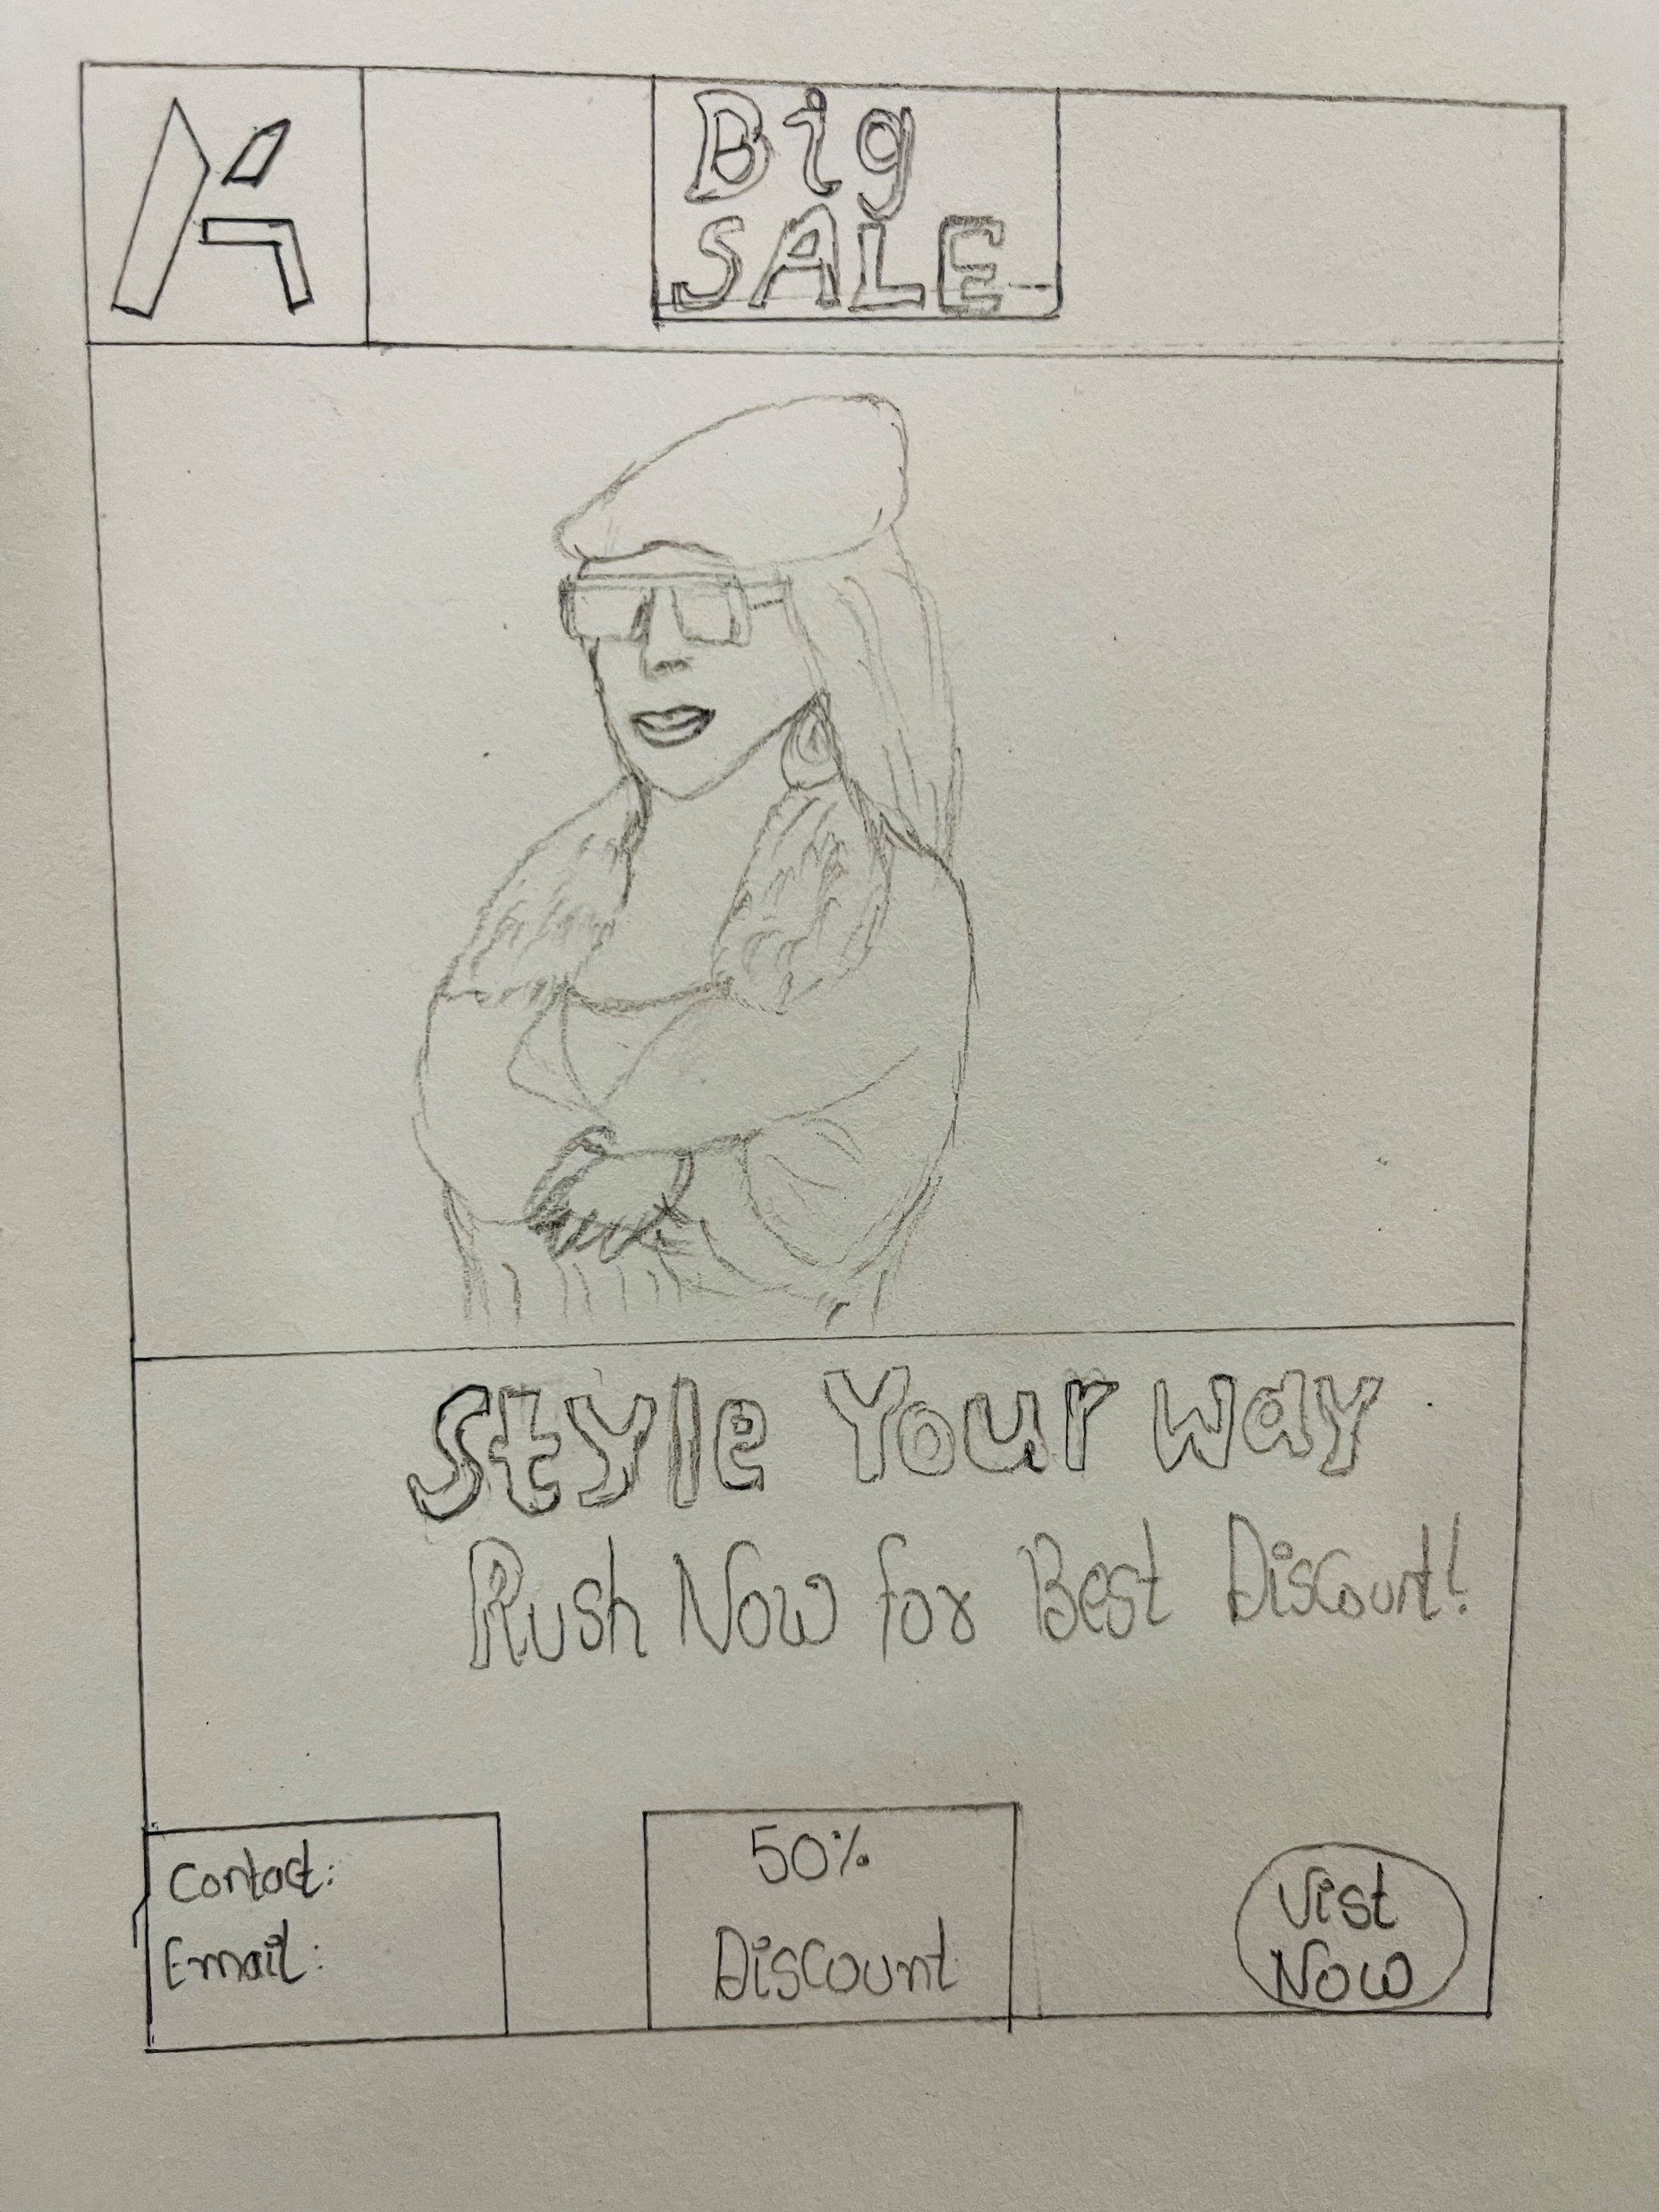 Big
SALE
Style Your Way
Rush Now for Best Discount!
Contact:
Email:
50%
Discount
Vist
Now